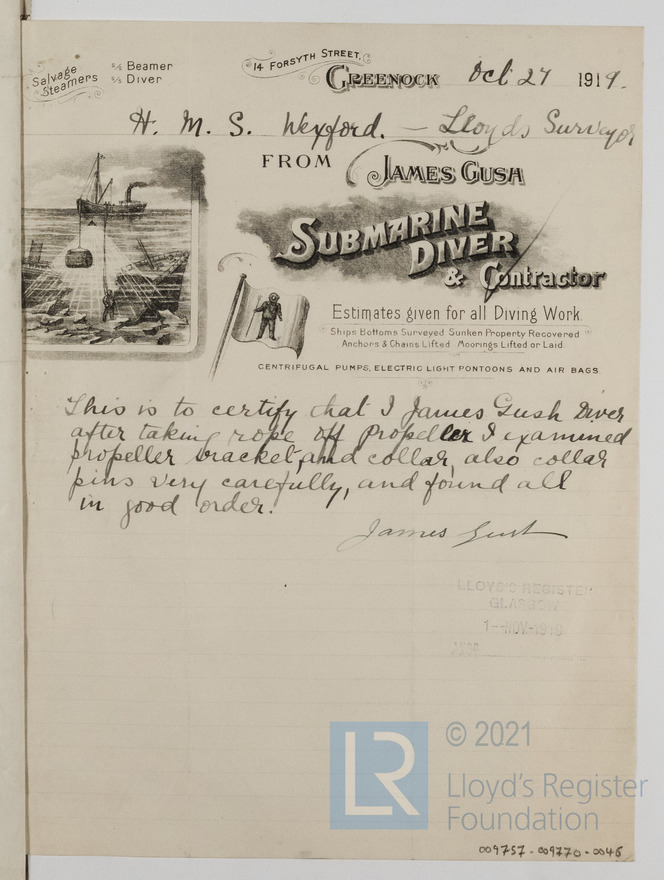 Salvage Steamers
S/S Beamer
S/S Diver
14 FORSYTH STREET,
GREENOCK Oct 27 1919.
H. M. S. Wexford. — Lloyds Surveyor
FROM JAMES GUSH
SUBMARINE
DIVER
& Contractor
Estimates given for all Diving Work.
Ships Bottoms Surveyed Sunken Property Recovered
Anchors & Chains Lifted Moorings Lifted or Laid
CENTRIFUGAL PUMPS, ELECTRIC LIGHT PONTOONS AND AIR BAGS
This is to certify that I James Gush Diver
after taking rope off propeller I examined
propeller bracket, and collar, also collar
pins very carefully, and found all
in good order.
James Gush
LLOYD'S REGISTER
GLASGOW
1-NOV-1919
LR
© 2021
Lloyd's Register
Foundation
009757-009770-0046